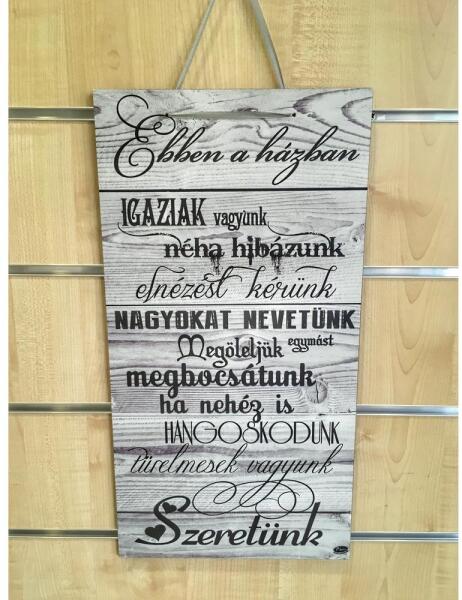 Ebben a házban
IGAZIAK vagyunk
néha hibázunk
elnézést kérünk
NAGYOKAT NEVETÜNK
Megöleljük egymást
megbocsátunk
ha nehéz is
HANGOSKODUNK
türelmesek vagyunk
Szeretünk